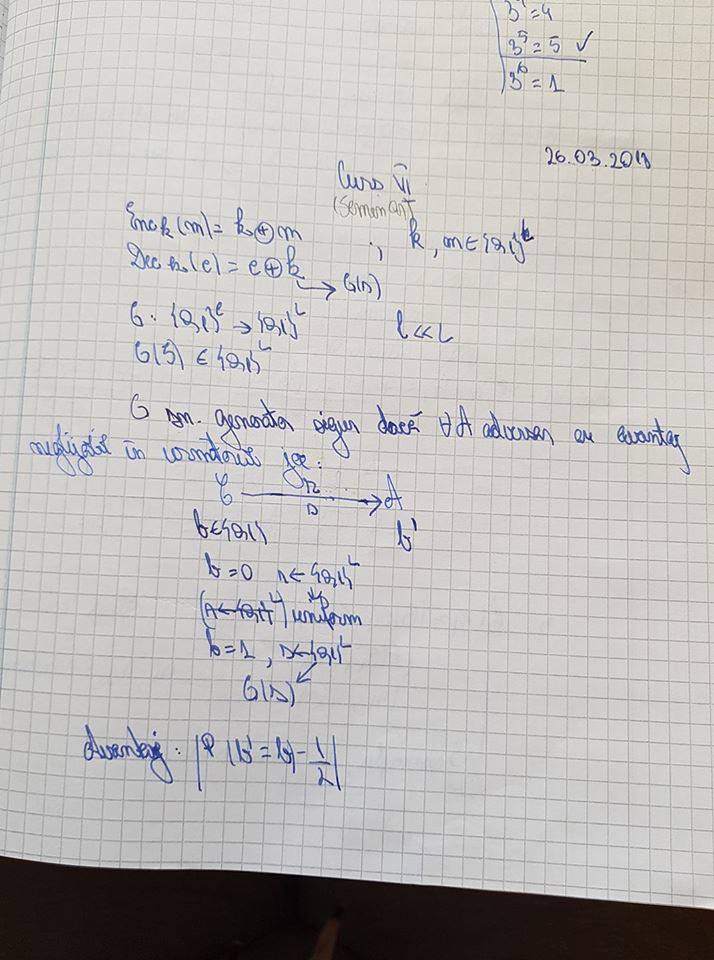 3⁴=4
3⁵=5 ✓
3⁶=1
26.03.2018
Curs VI
(Seminar)
Enc k(m)=k⊕m ; k, m∈{0,1}ᴸ
Dec k(c)=c⊕k → G(s)
G: {0,1}ˡ→{0,1}ᴸ l≪L
G(s)∈{0,1}ᴸ
G sn. generator sigur dacă ∀A adversari au avantaj
neglijabil în următorul joc:
C → A
b∈{0,1} b'
b=0 r←{0,1}ᴸ
uniform
b=1, s←{0,1}ᴸ
G(s)
Avantaj: |P(b'=b)-1/2|